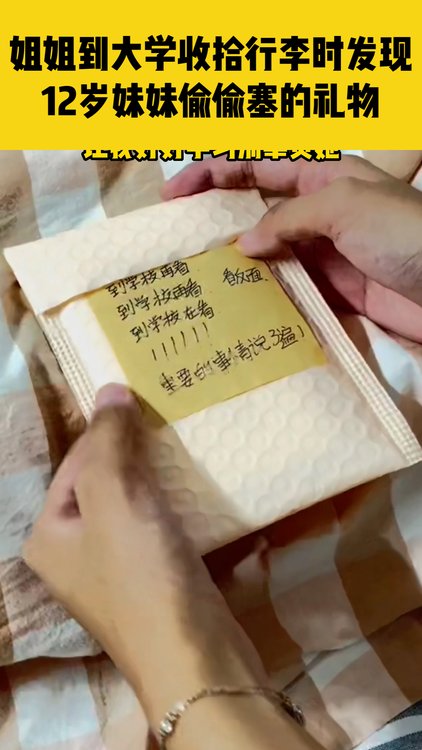 姐姐到大学收拾行李时发现
12岁妹妹偷偷塞的礼物
到学校再看
到学校再看 看反面
到学校在看
！！！！！！
重要的事情说3遍！